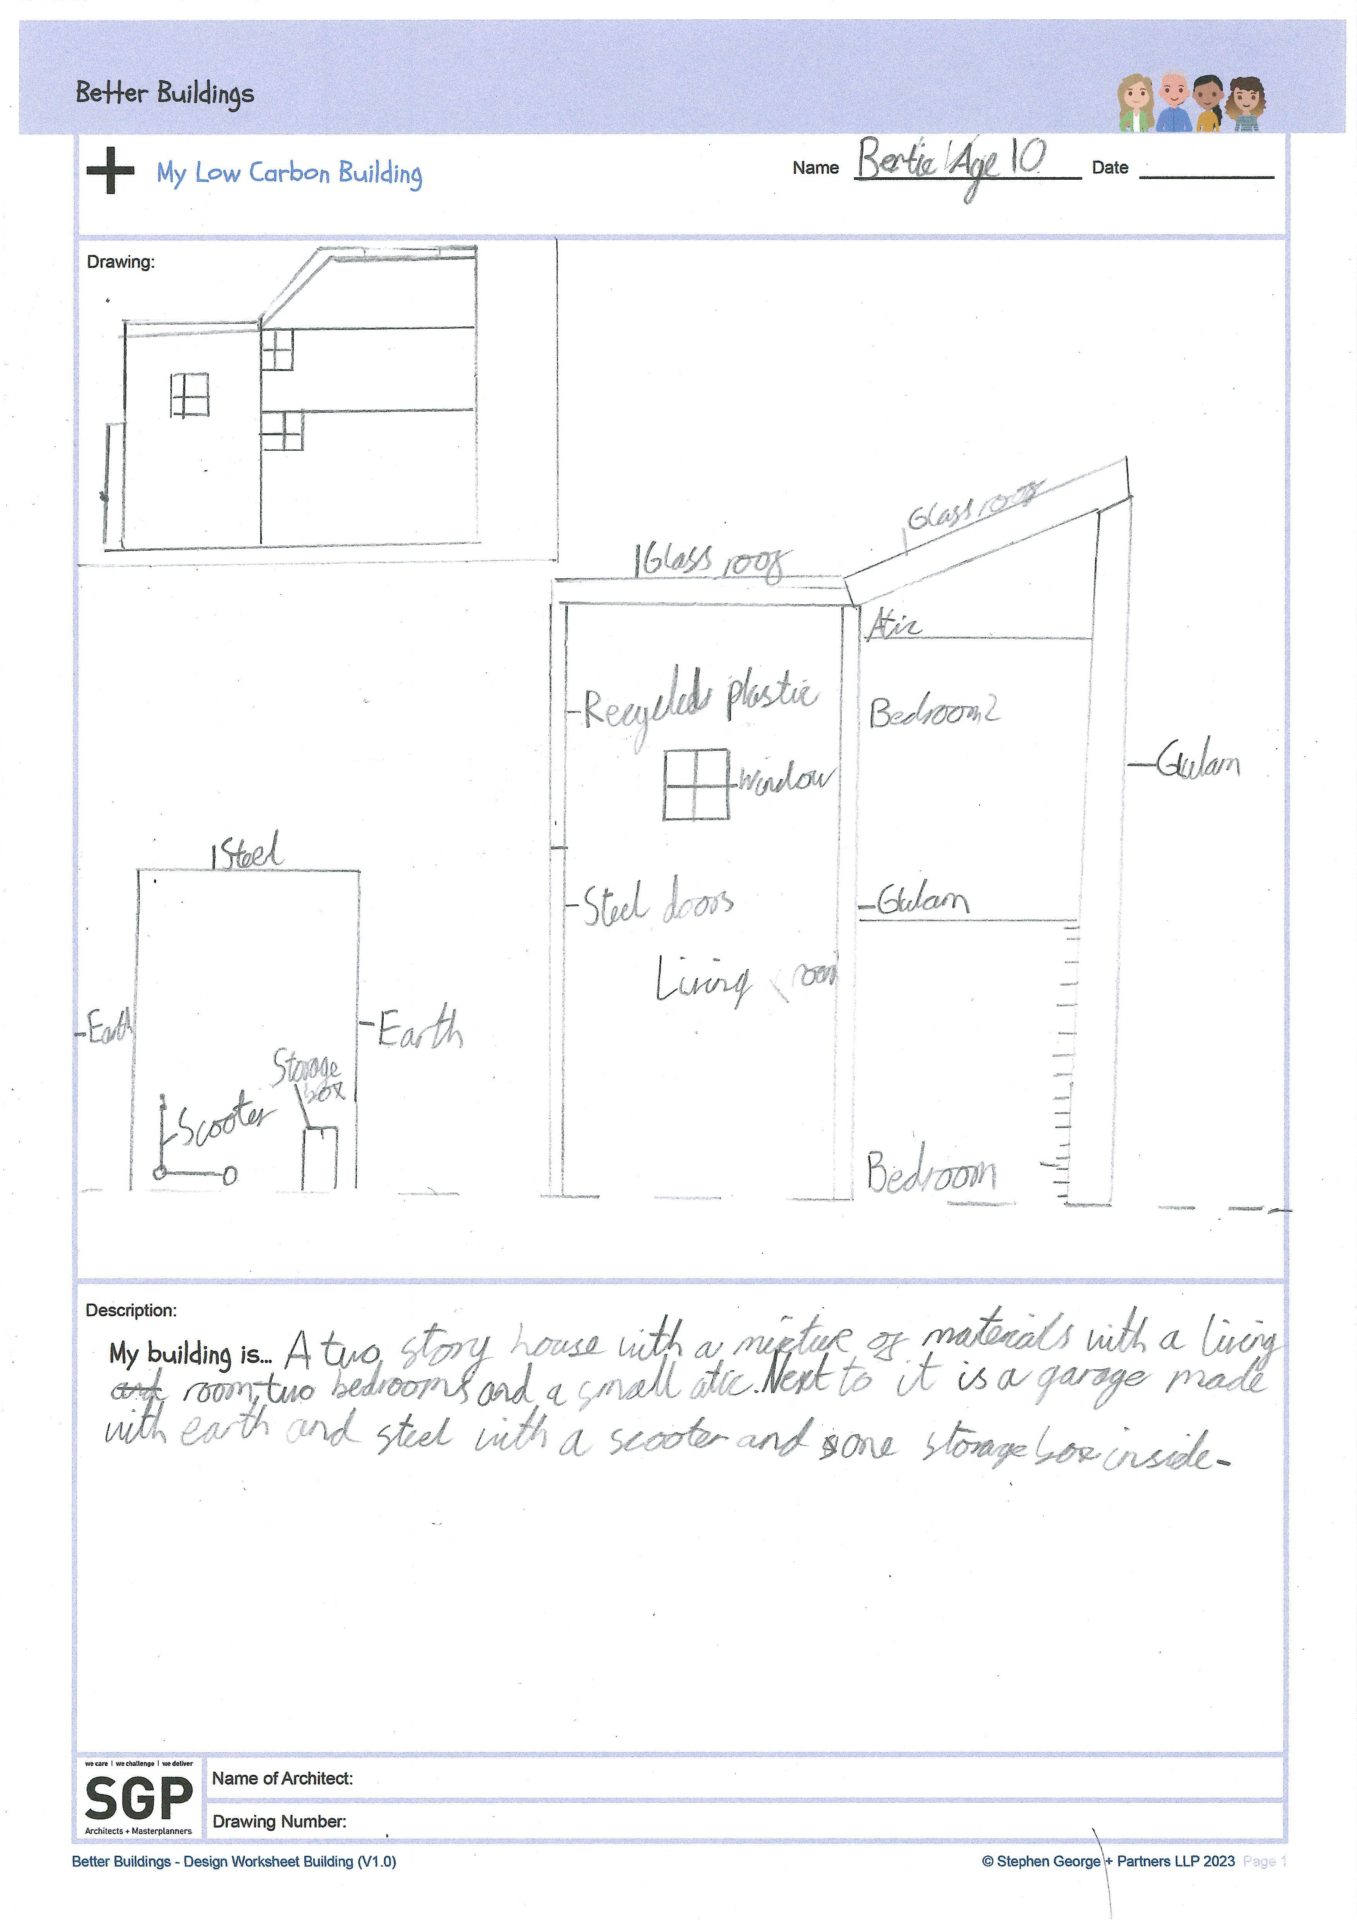 Better Buildings
My Low Carbon Building
Name Bertie Age 10 Date
Drawing:
Glass roof
Glass roof
Atic
Recycled plastic
Bedroom2
window
Glulam
Steel
Steel doors
Glulam
Living room
Earth
Earth
Storage
box
Scooter
Bedroom
Description:
My building is... A two story house with a mixture of materials with a living
and room, two bedrooms and a small atic. Next to it is a garage made
with earth and steel with a scooter and one storage box inside-
we care | we challenge | we deliver
SGP
Architects + Masterplanners
Name of Architect:
Drawing Number:
Better Buildings - Design Worksheet Building (V1.0)
© Stephen George + Partners LLP 2023 Page 1